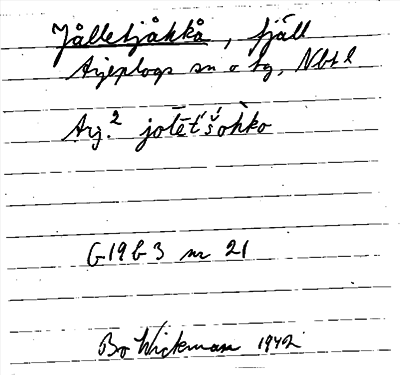 Jålletjåkkå, fjäll
Arjeplogs sn o tg, Nbtl
Arj.² jolēt́šohko
G19b3 nr 21
Bo Wickman 1942